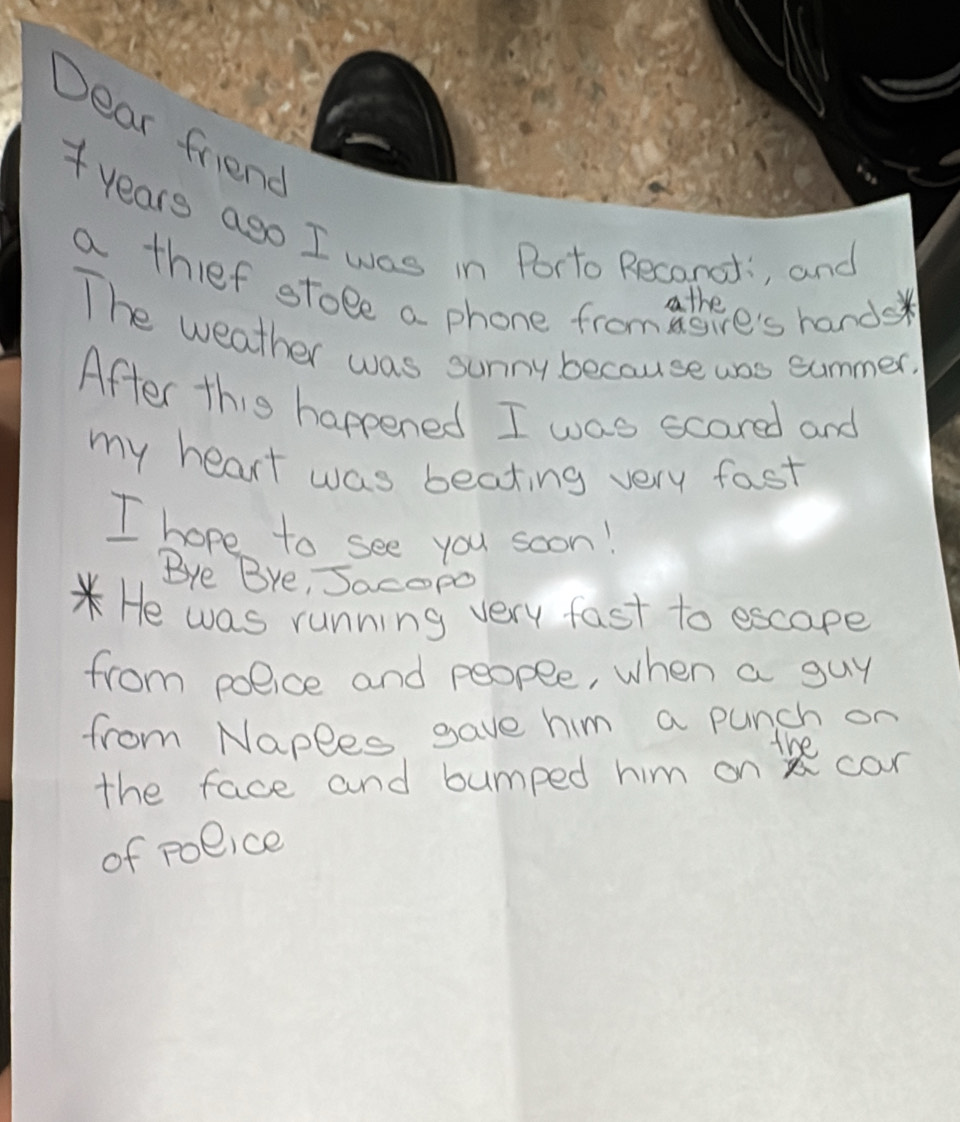 Dear friend
7 years ago I was in Porto Recanati, and
a thief stole a phone from the sire's hands*
The weather was sunny because was summer.
After this happened I was scared and
my heart was beating very fast
I hope to see you soon!
Bye Bye, Jacopo
* He was running very fast to escape
from police and people, when a guy
from Naples gave him a punch on
the face and bumped him on the car
of police